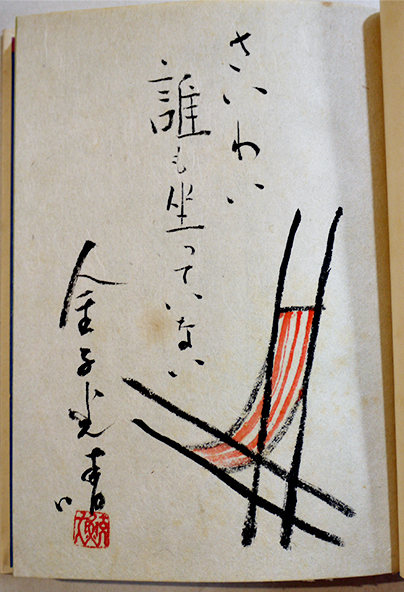 さいわい
誰も坐っていない
金子光晴